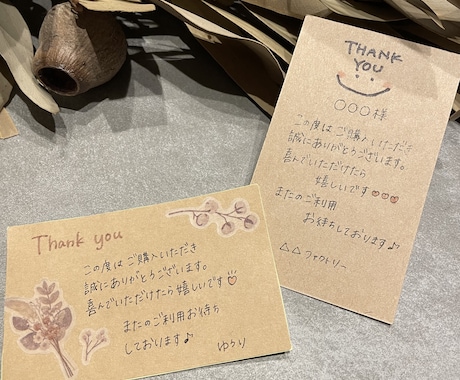 Thank you
この度は ご購入いただき
誠にありがとうございます。
喜んでいただけたら嬉しいです♡
またのご利用お待ち
しております♪
ゆうり
THANK
YOU
○○○様
この度は ご購入いただき
誠にありがとうございます。
喜んでいただけたら
嬉しいです♡♡♡
またのご利用
お待ちしております♪
△△ファクトリー